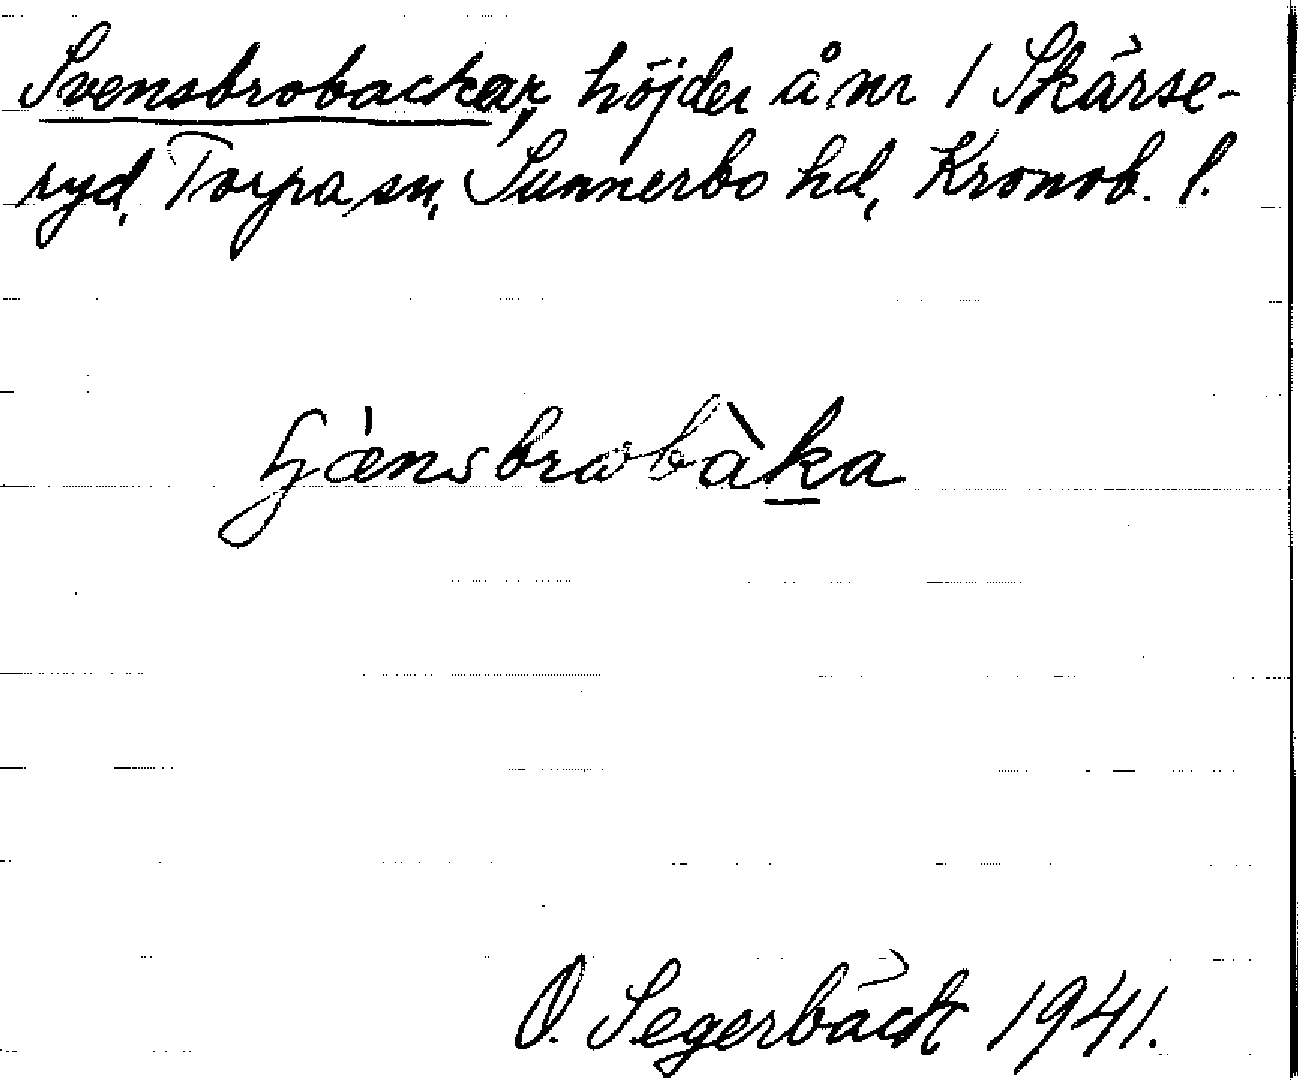 Svensbrobackar, höjder å nr 1 Skärse-
ryd, Torpa sn, Sunnerbo hd, Kronob. l.
O. Segerbäck 1941.